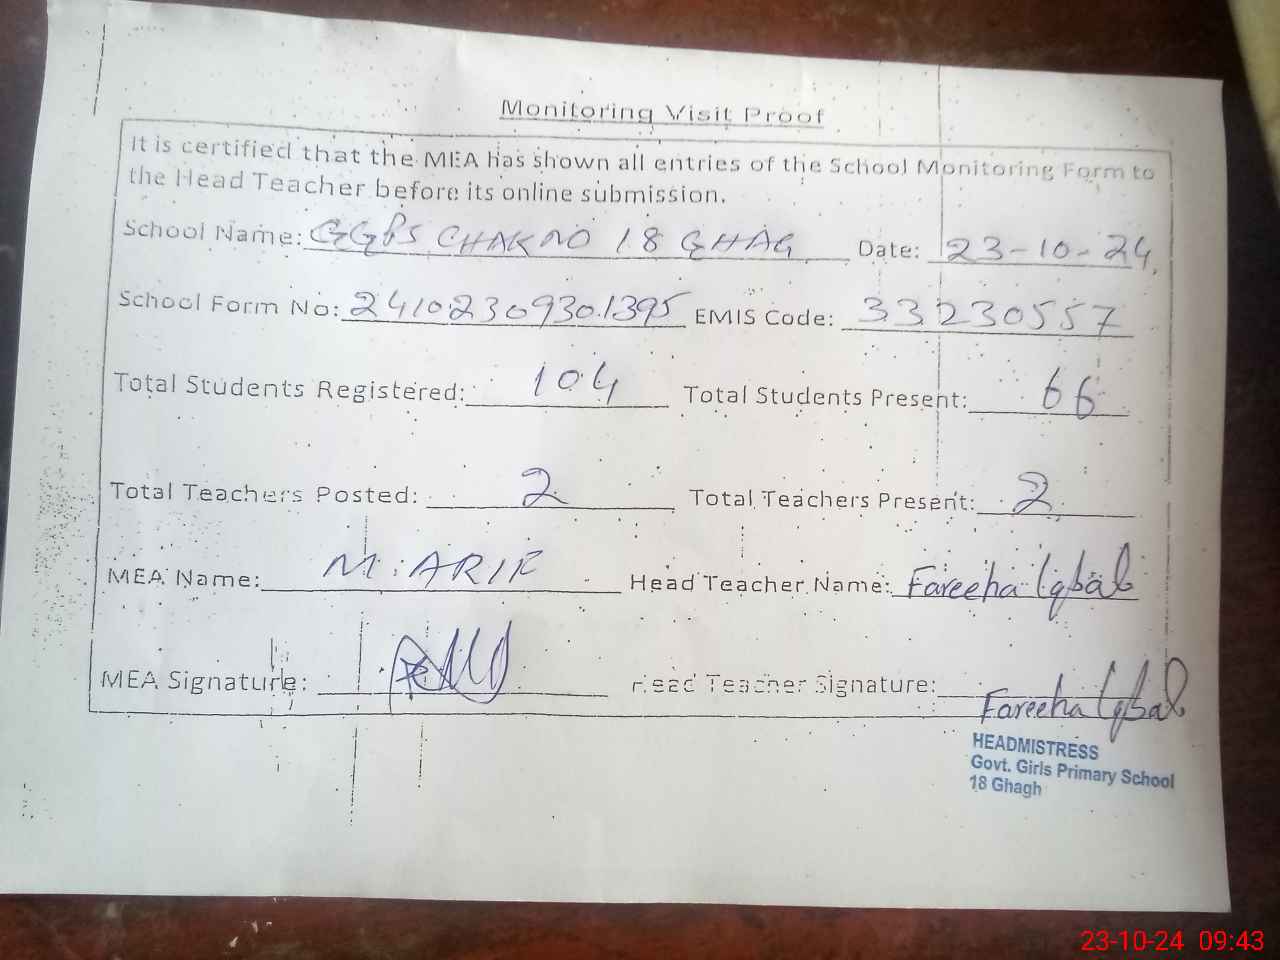 Monitoring Visit Proof
It is certified that the MEA has shown all entries of the School Monitoring Form to
the Head Teacher before its online submission.
School Name: GGPS CHAK NO 18 GHAG Date: 23-10-24
School Form No: 24102309301395 EMIS Code: 33230557
Total Students Registered: 104 Total Students Present: 66
Total Teachers Posted: 2 Total Teachers Present: 2
MEA Name: M. ARIF Head Teacher Name: Fareeha Iqbal
MEA Signature: Head Teacher Signature: Fareeha Iqbal
HEADMISTRESS
Govt. Girls Primary School
18 Ghagh
23-10-24 09:43